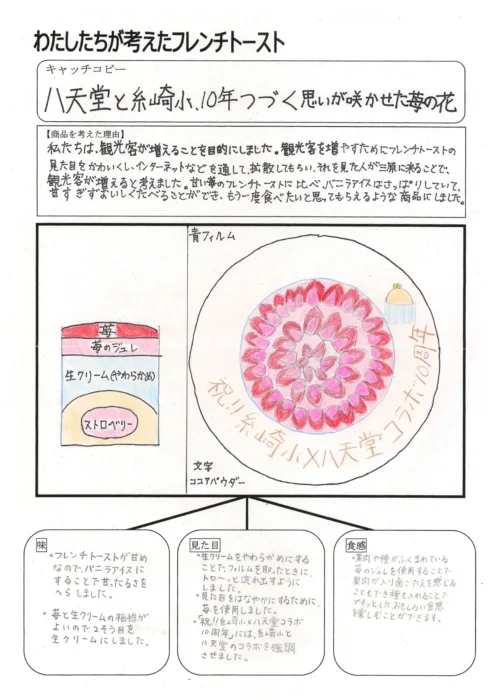 わたしたちが考えたフレンチトースト
キャッチコピー
八天堂と糸崎小、10年つづく思いが咲かせた苺の花
【商品を考えた理由】
私たちは、観光客が増えることを目的にしました。観光客を増やすためにフレンチトーストの
見た目をかわいくし、インターネットなどを通して、拡散してもらい、それを見た人が三原に来ることで、
観光客が増えると考えました。甘い苺のフレンチトーストに比べ、バニラアイスはさっぱりしていて、
甘すぎずおいしくたべることができ、もう一度食べたいと思ってもらえるような商品にしました。
青フィルム
苺
苺のジュレ
生クリーム(やわらかめ)
ストロベリー
祝!!糸崎小×八天堂コラボ10周年
文字
ココアパウダー
味
・フレンチトーストが甘め
なので、バニラアイスに
することで甘ったるさを
へらしました。
・苺と生クリームの相性が
よいので2そう目を
生クリームにしました。
見た目
・生クリームをやわらかめにする
ことで、フィルムを取ったときに、
トローっと流れ出すように
しました。
・見た目をはなやかにするために、
苺を使用しました。
・「祝!!糸崎小×八天堂コラボ
10周年」には、糸崎小と
八天堂のコラボを強調
させました。
食感
・果肉や種がふくまれている
苺のジュレを使用することで
果肉が入り歯ごたえを感じる
こともでき種も入れることで
プチッとしたおもしろい食感
を楽しむことができます。